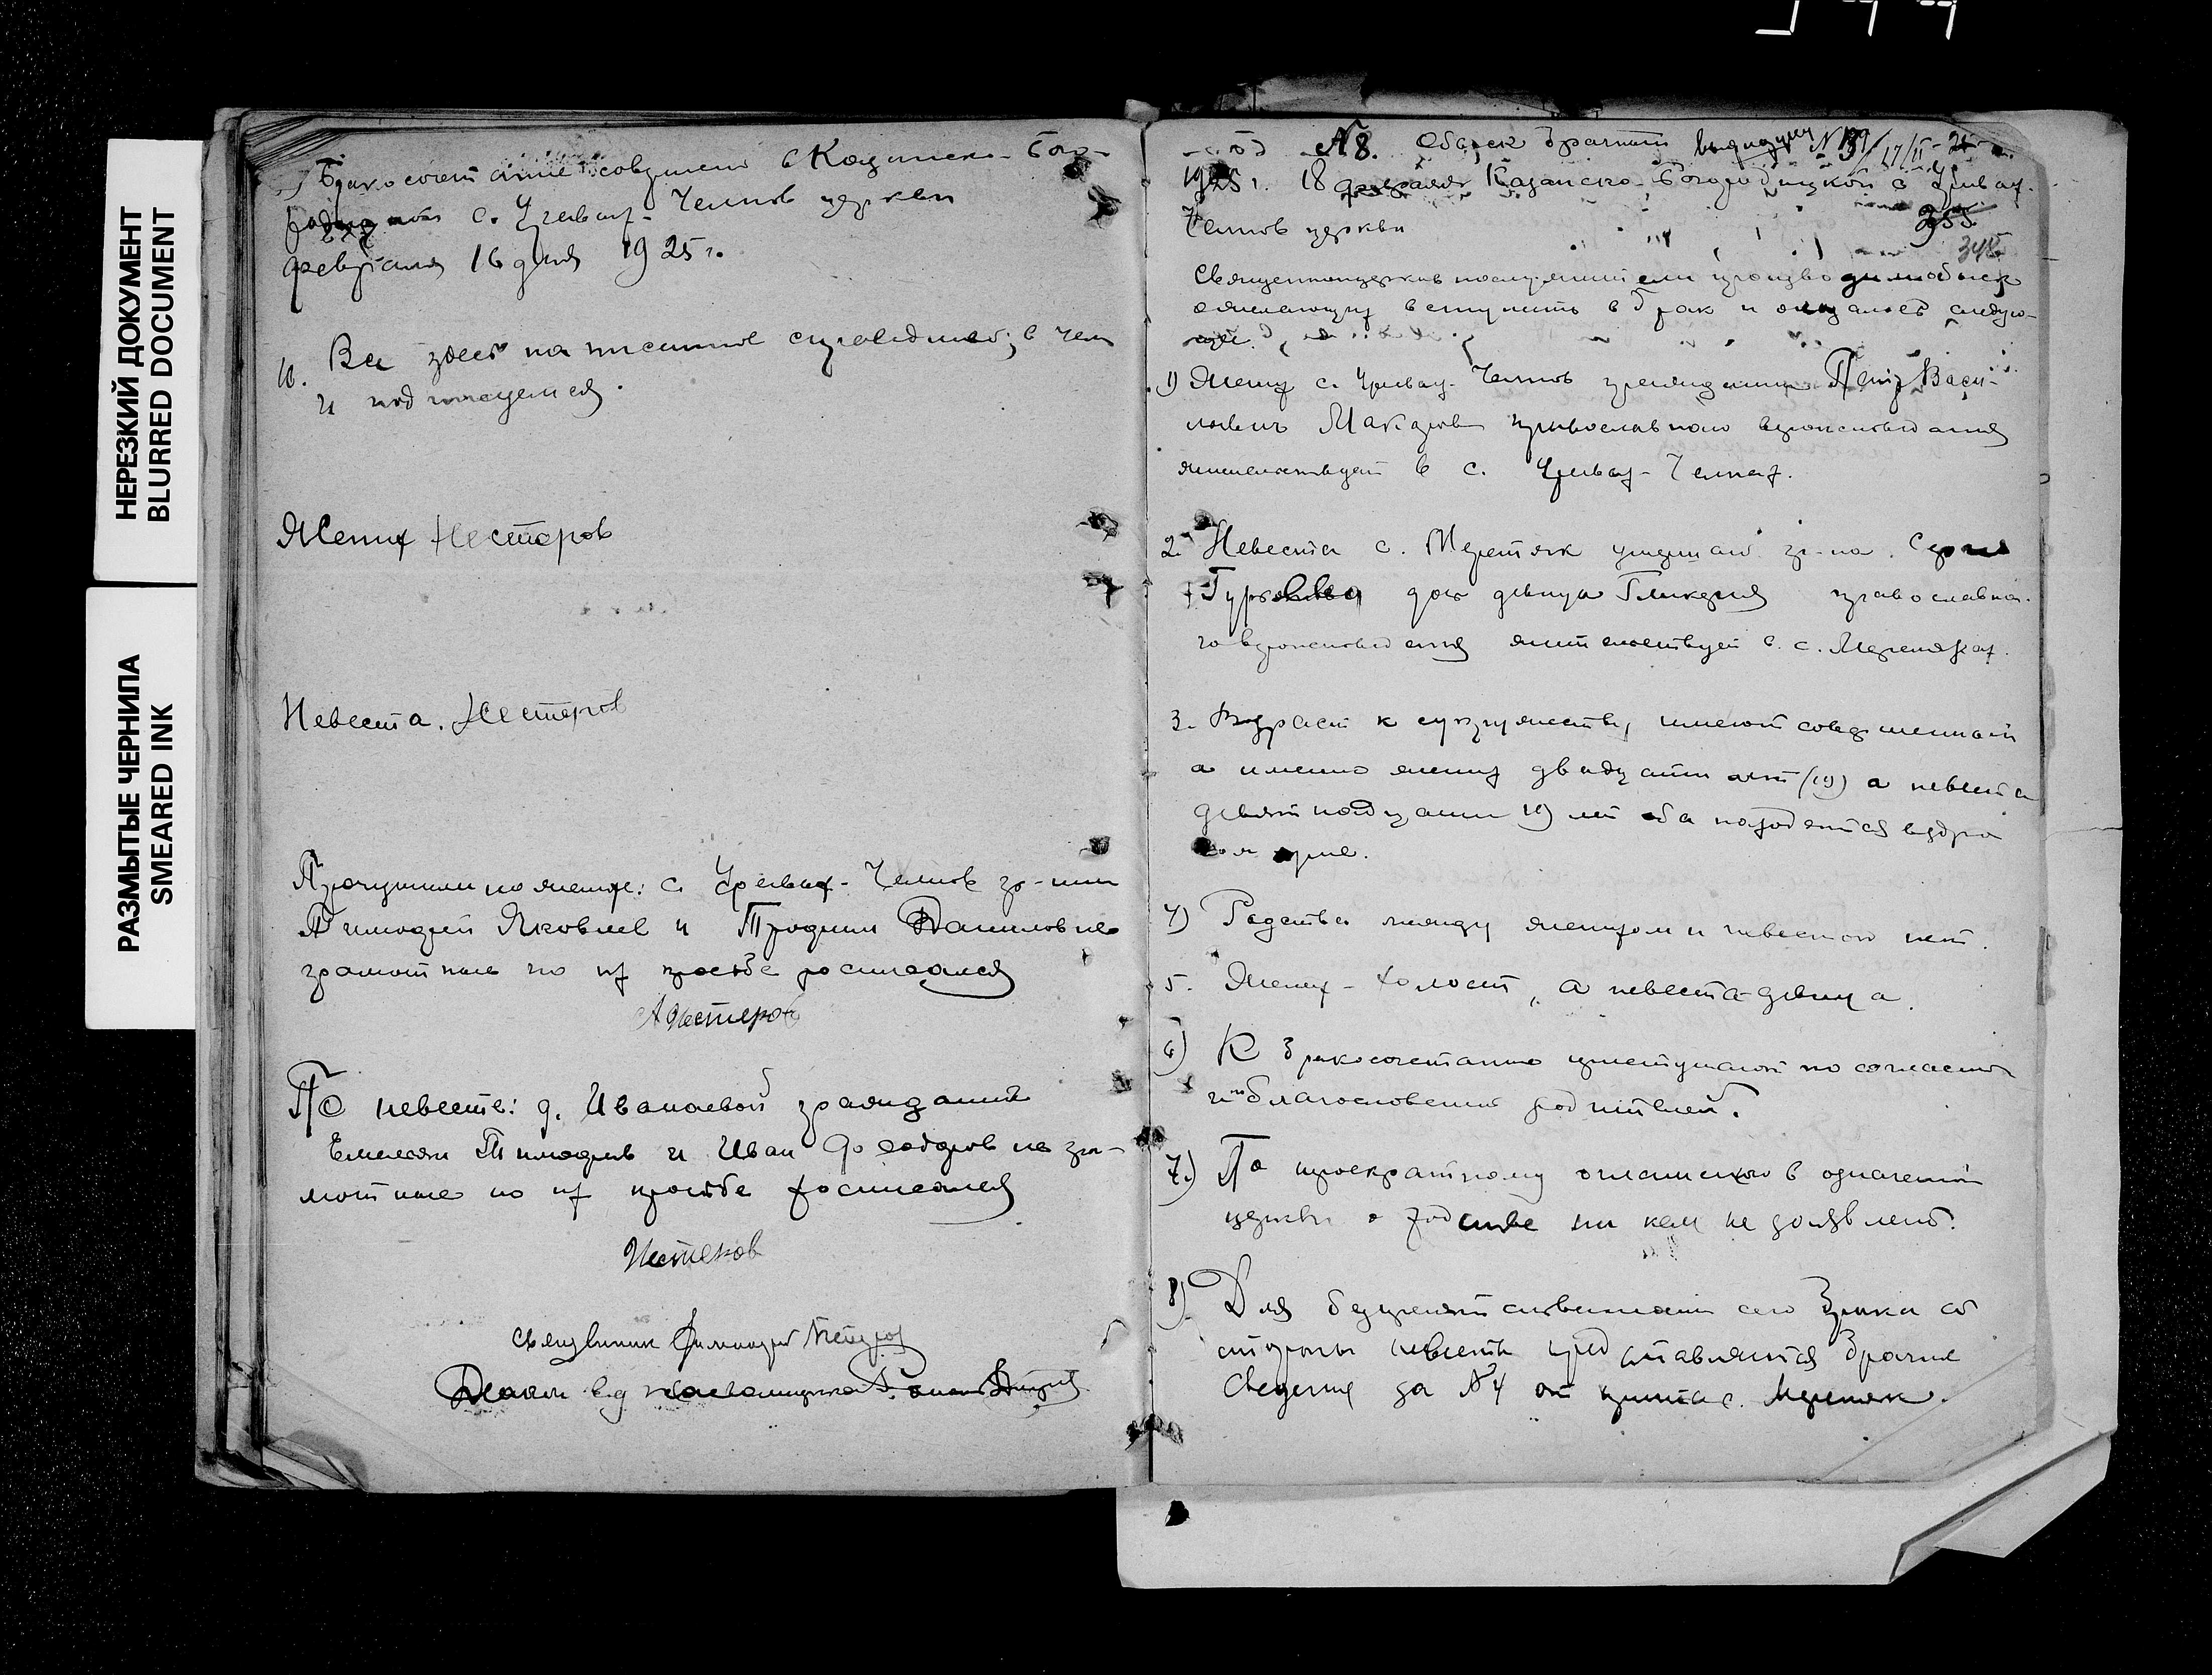 НЕРЕЗКИЙ ДОКУМЕНТ
BLURRED DOCUMENT
РАЗМЫТЫЕ ЧЕРНИЛА
SMEARED INK
Бракосочетание совершено в Казанско-Бого-
с. Челнов церкви
февраля 16 дня 1925 г.
10. Все здесь написанное справедливо, в чем
и подписуемся.
Жених Нестеров
Невеста. Нестеров
Поручители по женихе: с. Челнов гр-не
Тимофей Яковлев и Трофим Данилов не
грамотные по их просьбе росписался
А Нестеров
По невесте: д. Ивановой граждане
Емельян Тимофеев и Иван Федоров не гра-
мотные по их просьбе росписался
Нестеров
Священник Петров
№ 8. Обыск брачный
1925 г. 18 февраля Казанско-Богородицкой с.
Челнов церкви
355
348
Священноцерковнослужители производили обыск
о желающих вступить в брак и оказалось следую-
щее.
1) Жених с. Челнов гражданин Петр Васи-
льевич Макаров православного вероисповедания
жительствует в с. Челнах.
2. Невеста с. Меретяк гр-на
дочь девица Гликерия православно-
го вероисповедания жительствует в с. Меретяках.
3. Возраст к супружеству имеют совершенный
а именно жених двадцати лет (19) а невеста
девятнадцати 19) лет оба находятся в здра
вом уме.
4) Родства между женихом и невестою нет.
5. Жених - холост, а невеста девица.
6) К бракосочетанию приступают по согласию
и по благословению родителей.
7.) По троекратному оглашению в означенной
церкви о родстве ни кем не заявлено.
8) Для безпрепятствования сего брака со
стороны невесты представляются брачные
сведения за № 4 от причта с. Меретяк.